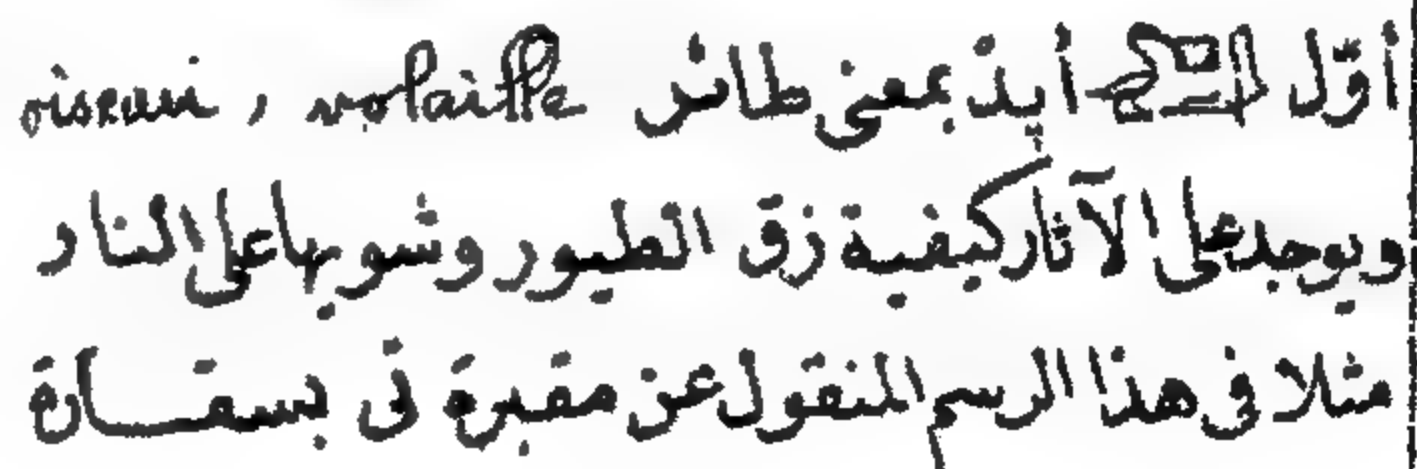 أوّل أپدّ بمعنى طائر oiseau, volaille
ويوجد على الآثار كيفية زق الطيور وشويها على النار
مثلا فى هذا الرسم المنقول عن مقبرة تى بسقارة